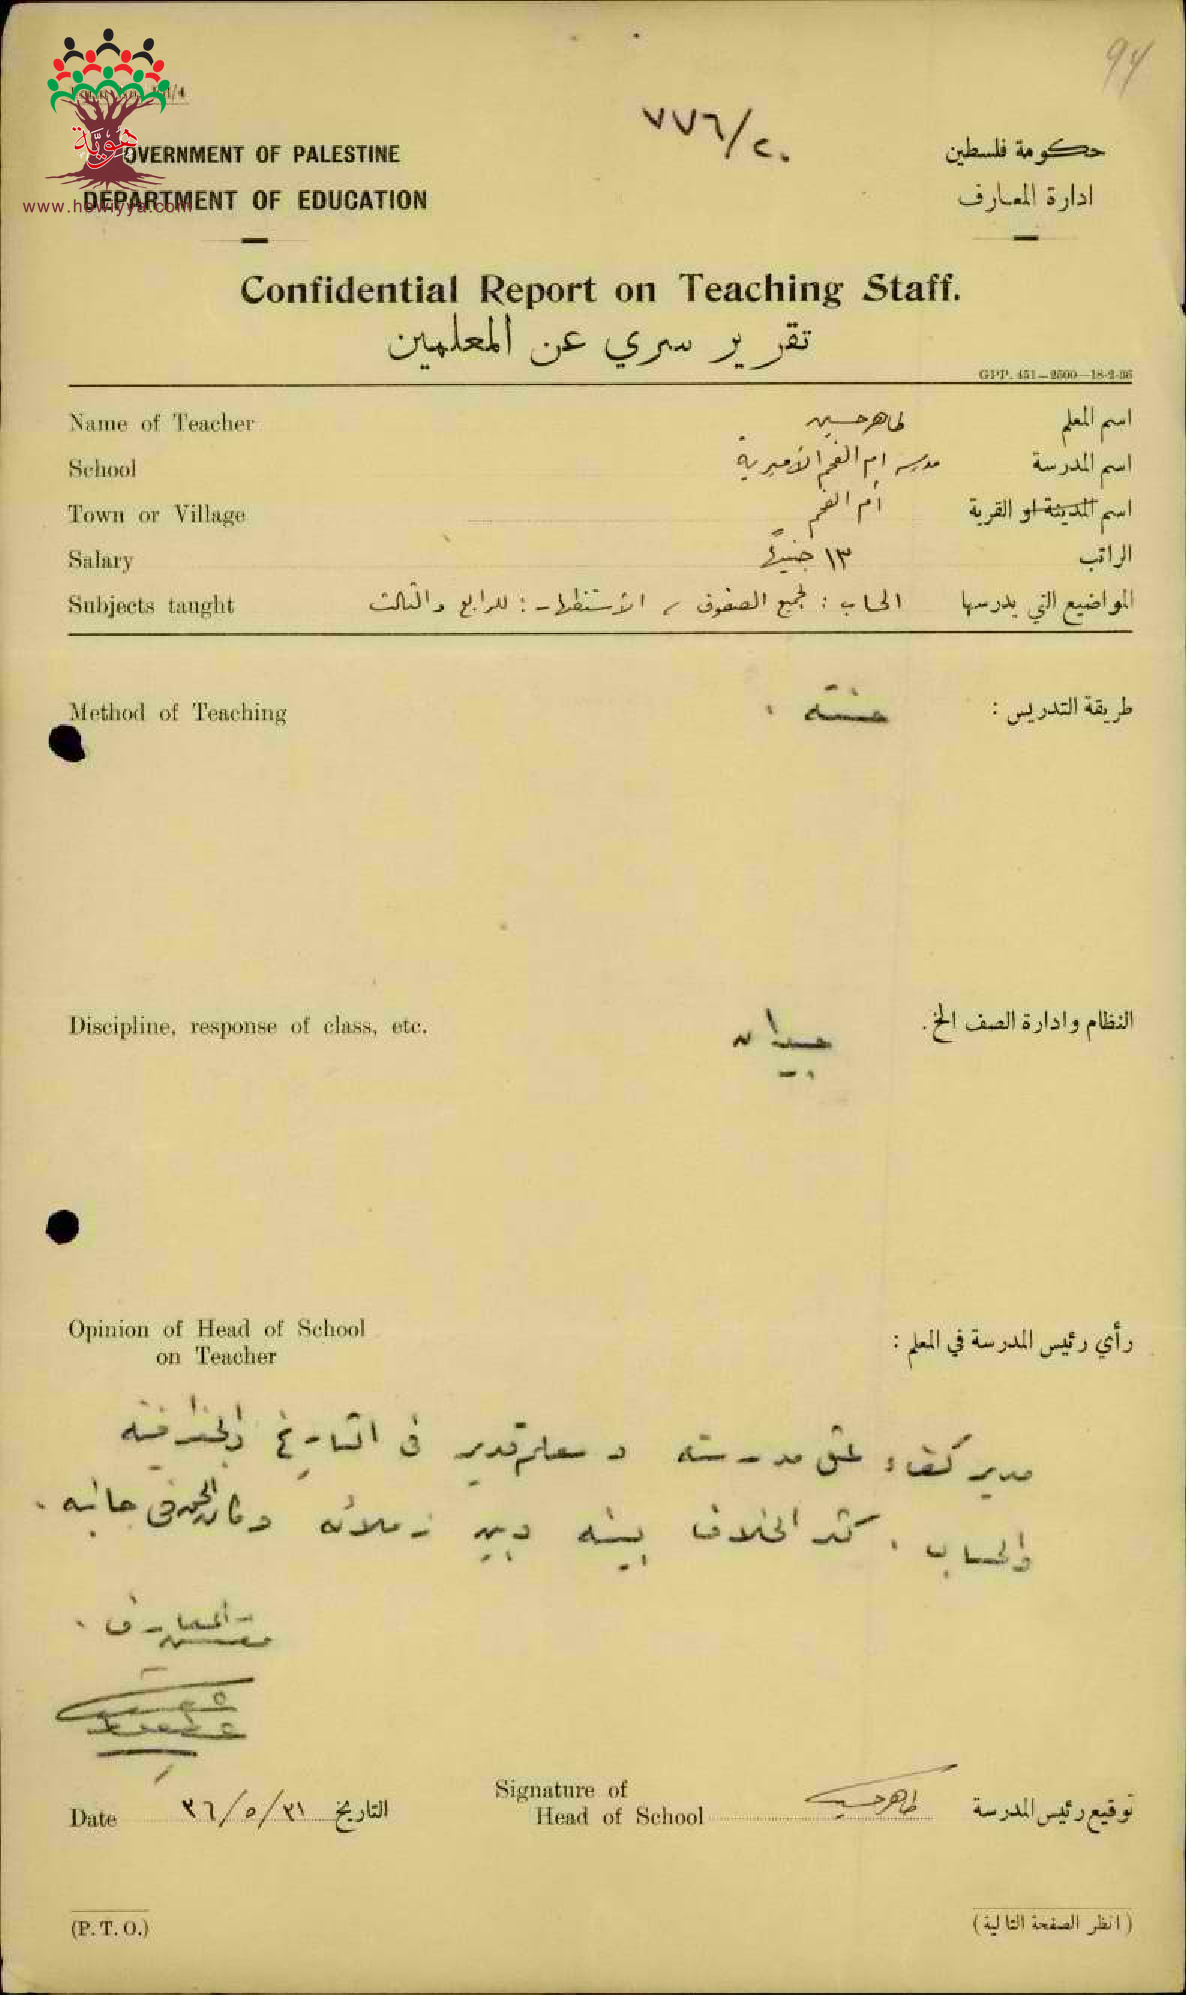 94
٧٧٦/٢٠
هوية
www.howiyya.com
GOVERNMENT OF PALESTINE
حكومة فلسطين
DEPARTMENT OF EDUCATION
ادارة المعارف
Confidential Report on Teaching Staff.
تقرير سري عن المعلمين
GPP. 451—2500—18-2-36
Name of Teacher طاهر حسين اسم المعلم
School مدرسة ام الفحم الأميرية اسم المدرسة
Town or Village أم الفحم اسم المدينة او القرية
Salary ١٣ جنيهًا الراتب
Subjects taught الحساب : لجميع الصفوف ، الاستظهار : للرابع والثالث المواضيع التي يدرسها
Method of Teaching حسنة . طريقة التدريس :
Discipline, response of class, etc. جيدان النظام وادارة الصف الخ .
Opinion of Head of School
on Teacher
رأي رئيس المدرسة في المعلم :
مدير كفء على مدرسته ومعلم قدير في التاريخ والجغرافية
والحساب . كثر الخلاف بينه وبين زملائه وكان الحق في جانبه .
مفتش المعارف .
Signature of
Head of School طاهر حسين توقيع رئيس المدرسة
Date ٣٦/٥/٣١ التاريخ
(P. T. O.)
(انظر الصفحة التالية)